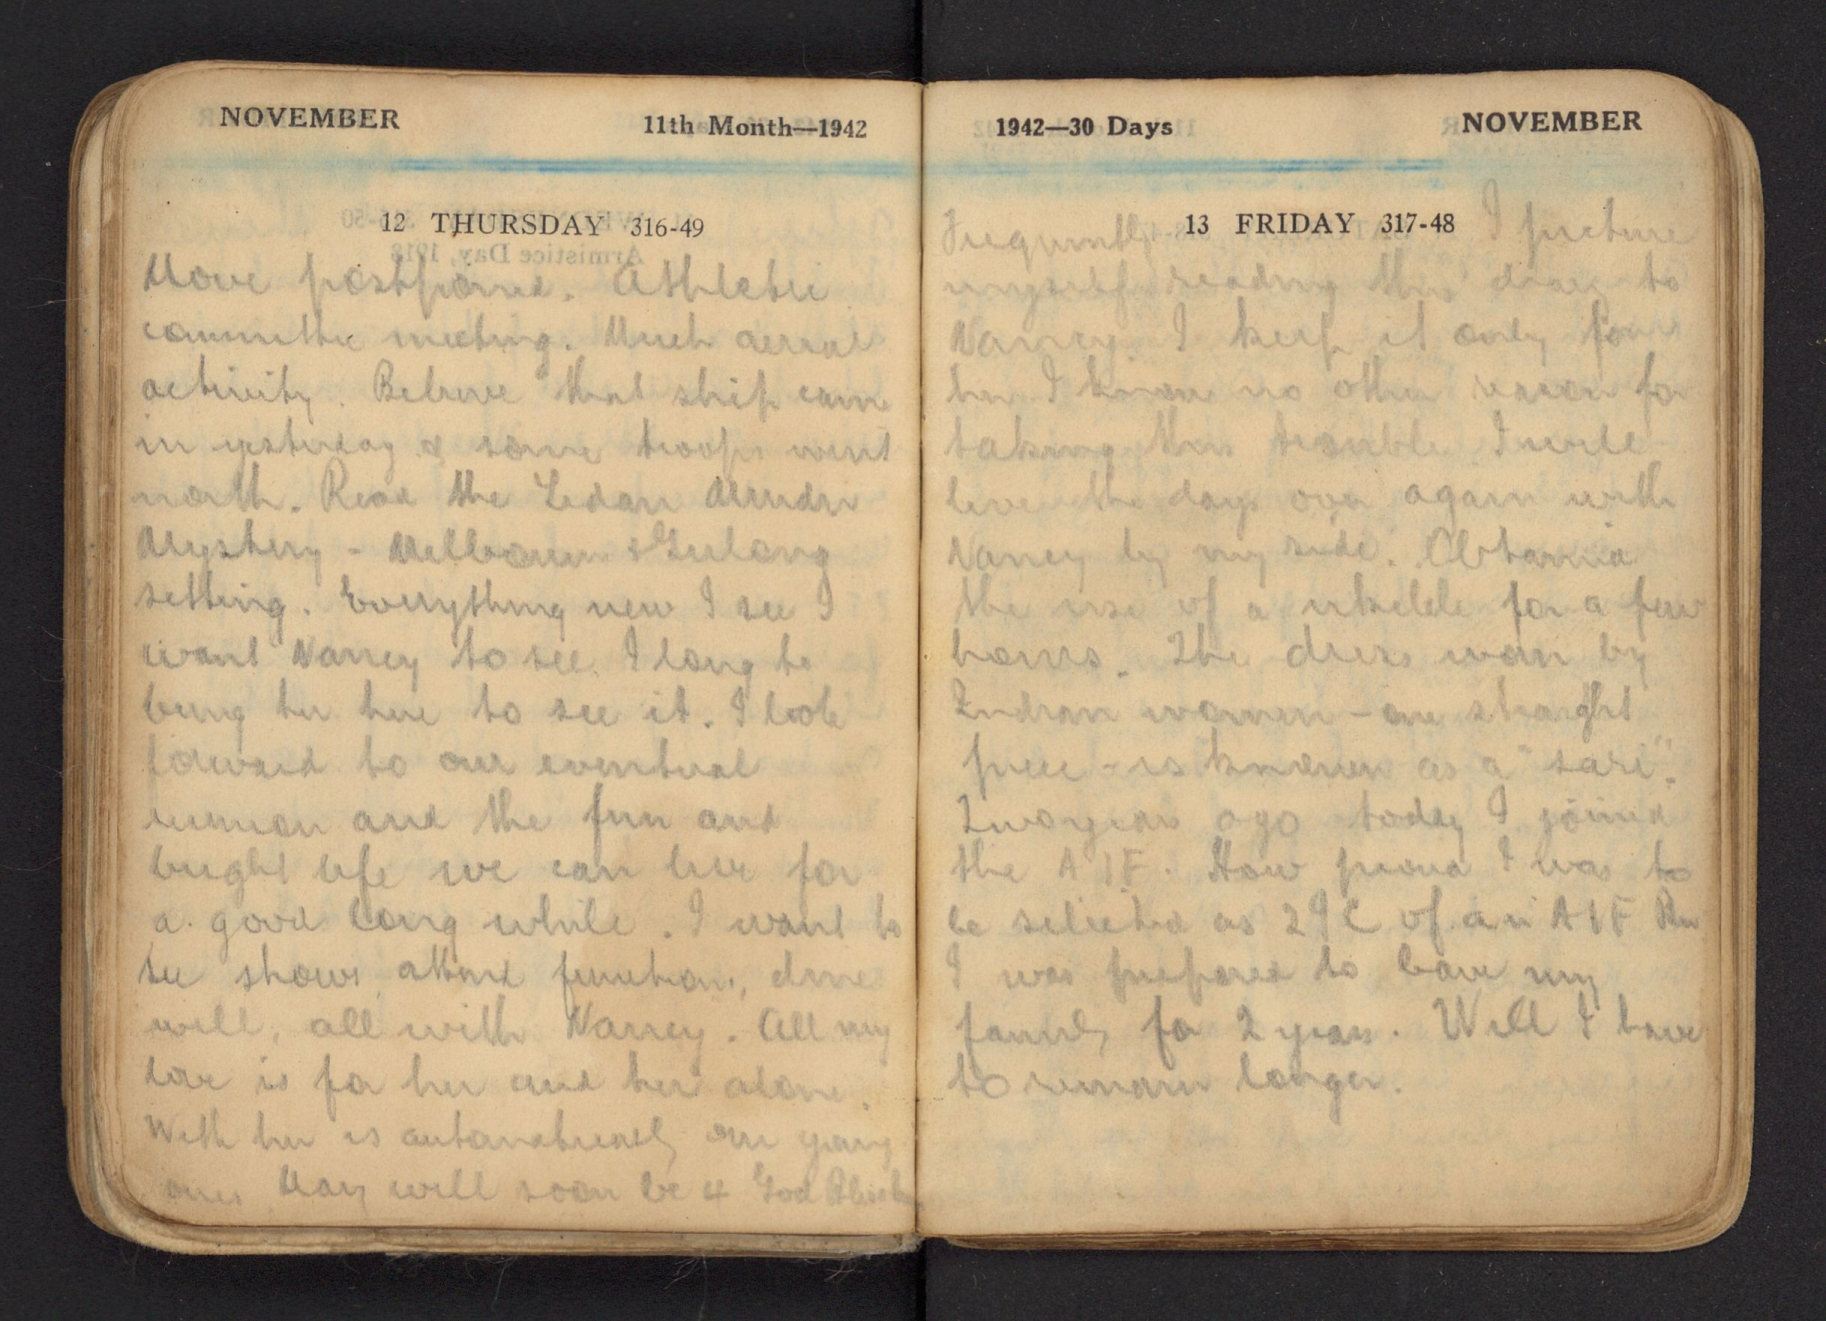 NOVEMBER
11th Month—1942
12 THURSDAY 316-49
Move postponed. Athletic
committee meeting. Much aerial
activity. Believe that ship came
in yesterday & some troops went
north. Read the Sedan Murder
Mystery - Melbourne & Geelong
setting. Everything new I see I
want Nancy to see. I long to
bring her here to see it. I look
forward to our eventual
reunion and the fun and
bright life we can live for
a good long while. I want to
see shows, attend functions, dine
well, all with Nancy. All my
love is for her and her alone.
With her is automatically our young
ones. May will soon be 4 God Bless
1942—30 Days
NOVEMBER
13 FRIDAY 317-48
Frequently I picture
myself reading this diary to
Nancy. I keep it only for
her I know no other reason for
taking this trouble. I will
live the days over again with
Nancy by my side. Obtained
the use of a ukelele for a few
hours. The dress worn by
Indian women - one straight
piece - is known as a "sari".
Two years ago today I joined
the AIF. How proud I was to
be selected as 2IC of an AIF
I was prepared to leave my
family for 2 years. Will I have
to remain longer.